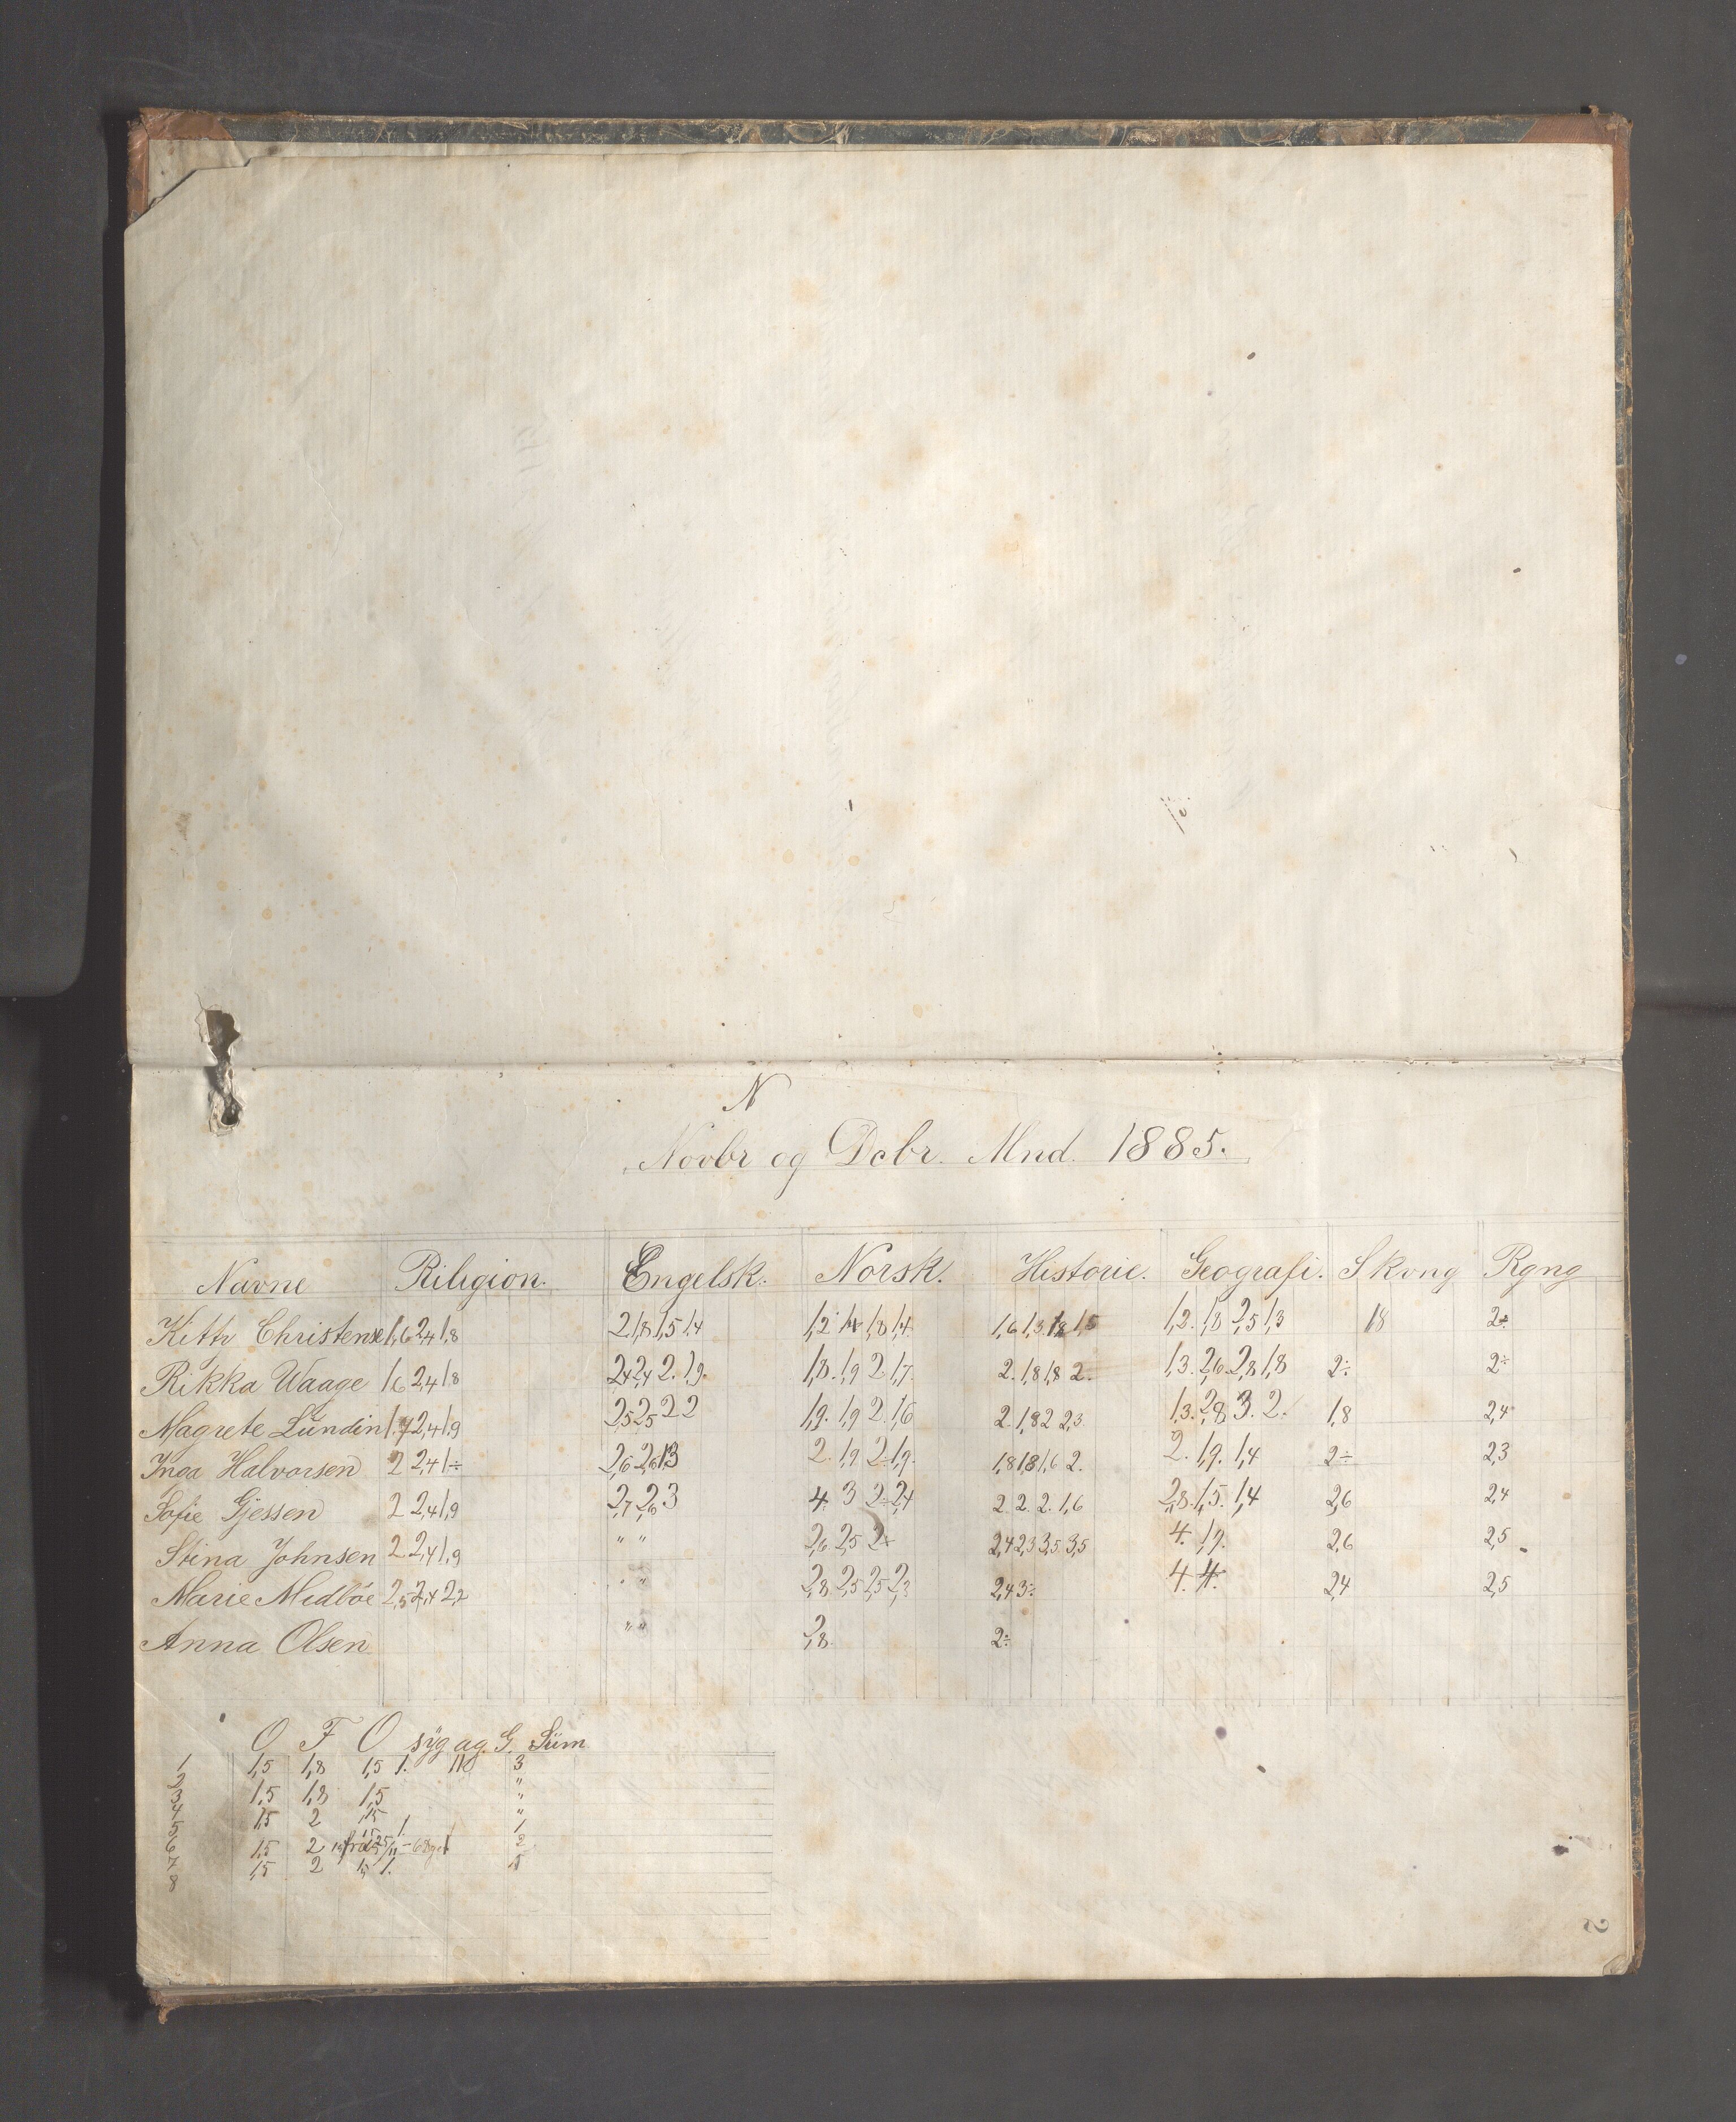 N
Novbr og Dcbr. Mnd. 1885.
Navne Riligion. Engelsk. Norsk. Historie. Geografi. Skvng Rgng
Kitty Christense 1,6 2,4 1,8 2 1,8 1,5 1,4 1,2 1,8 1,4 1,6 1,3 1,8 1,5 1,2. 1,8 2,5 1,3 1,8 2÷
Rikka Waage 1,6 2,4 1,8 2,4 2,4 2. 1,9. 1,8. 1,9 2 1,7. 2. 1,8 1,8 2. 1,3. 2,6. 2,8 1,8 2÷ 2÷
Magrete Lündin 1,7 2,4 1,9 2,5 2,5 2 2 1,9. 1,9 2. 1,6 2. 1,8 2 2,3 1,3. 2,8 3. 2. 1,8 2,4
Inga Halvorsen 2 2,4 1÷ 2,6 2,6 1,3 2. 1,9 2 1,9. 1,8 1,8 1,6 2. 2. 1,9. 1,4 2÷ 2,3
Sofie Gjessen 2 2,4 1,9 2,7 2,6 3 4. 3 2÷ 2,4 2. 2. 2. 1,6 2,8. 1,5. 1,4 2,6 2,4
Stina Johnsen 2 2,4 1,9 " " 2,6 2,5 2÷ 2,4 2,3 3,5 3,5 4. 1,9. 2,6 2,5
Marie Midböe 2,5 2,4 2,2 " " 2,8 2,5 2,5 2,3 2,4 3÷ 4. 4. 2,4 2,5
Anna Olsen " " 2,8. 2÷
O F O syg ag. G. Süm
1 1,5 1,8 1,5 1. 3
2 1,5 1,8 1,5 "
3 "
4 1,5 2 1,5 "
5 1. 1
6 1,5 2 fra 25/11 2
7 1,5 2 1,5 1.
8
2